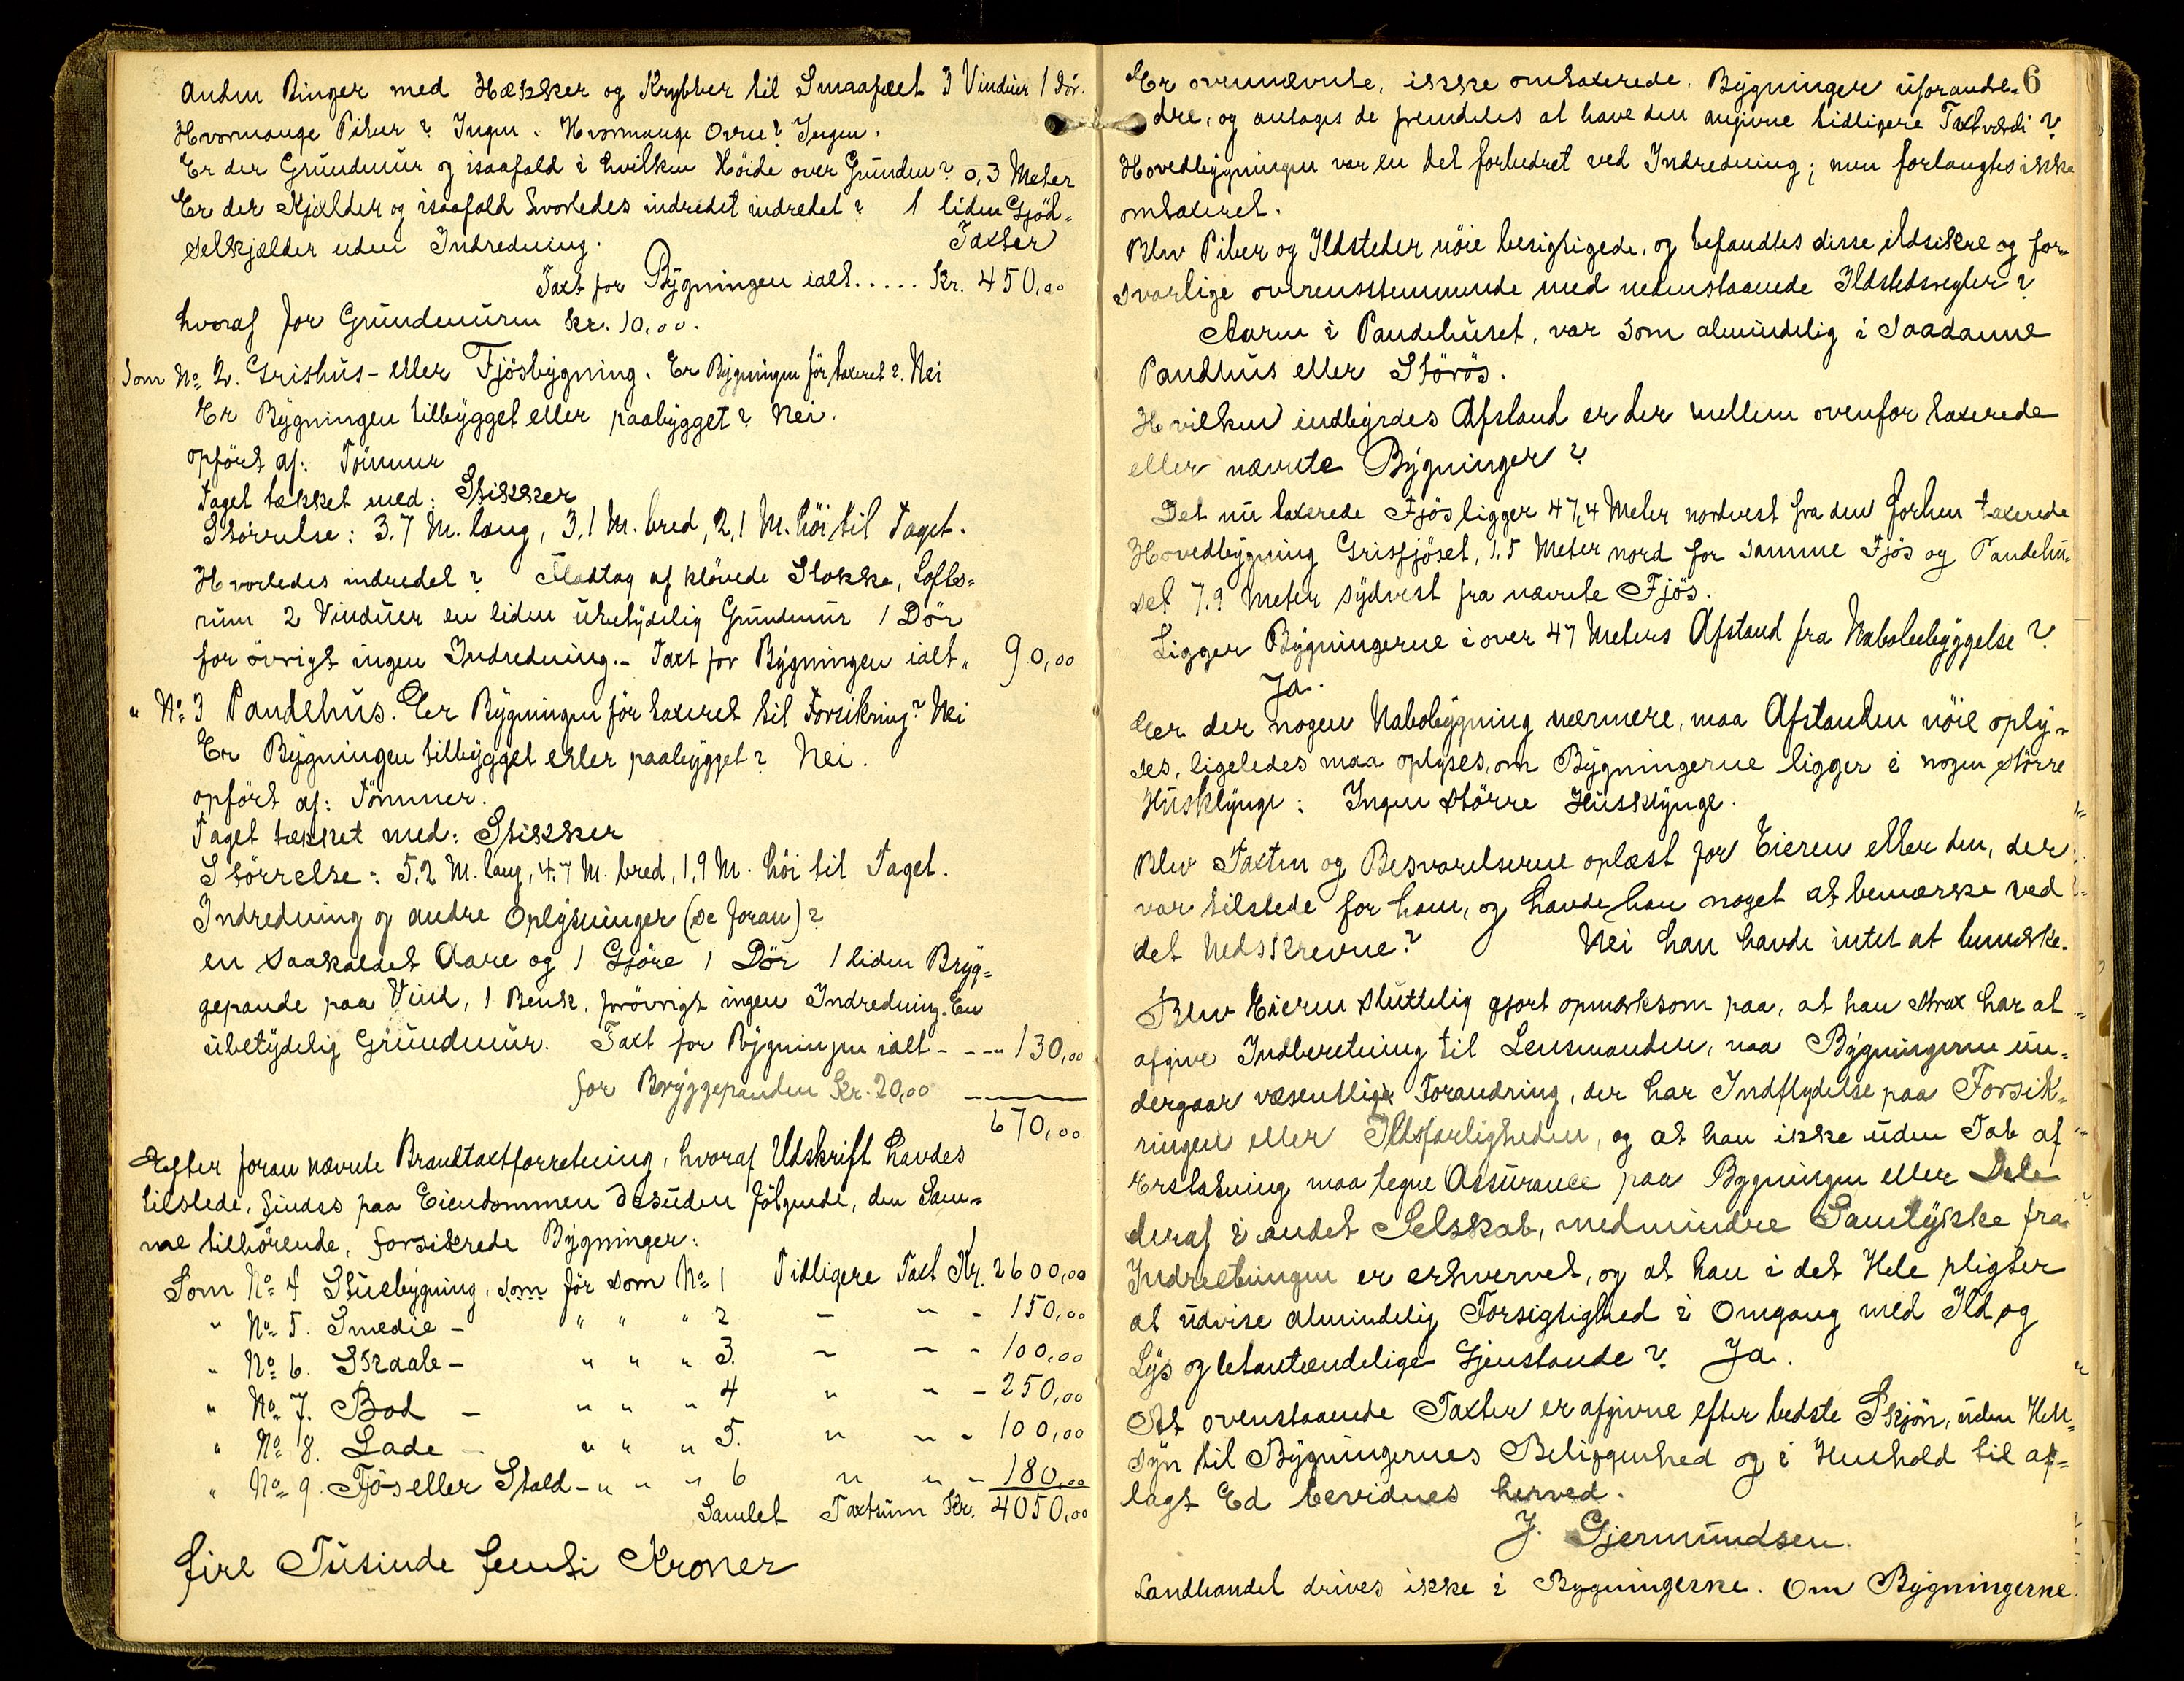 anden Binger med Hækker og Krybber til Smaafæet 3 Vinduer 1 Dør.
Hvormange Piber? Ingen. Hvormange Ovne? Ingen.
Er der Grundmur og isaafald i hvilken Höide over Grunden? 0,3 Meter
Er der Kjælder og isaafald hvorledes indredet indredet? 1 liden Gjöd-
selkjælder uden Indredning. Taxter
Taxt for Bygningen ialt..... Kr. 450,00
hvoraf for Grundmuren Kr. 10,00.
Som No 2. Grishus- eller Fjösbygning. Er Bygningen för taxeret? Nei
Er Bygningen tilbygget eller paabygget? Nei.
opfört af: Tömmer
Taget tækket med: Stikker
Störrelse: 3,7 M. lang, 3,1 M. bred, 2,1 M. höi til Taget.
Hvorledes indredet? Fladtag af klövede Stokke, Loftes-
rum 2 Vinduer en liden ubetydelig Grundmur 1 Dör
for övrigt ingen Indredning.- Taxt for Bygningen ialt " 90,00
" No 3 Pandehus. Er Bygningen för taxeret til Forsikring? Nei
Er Bygningen tilbygget eller paabygget? Nei.
opfört af: Tömmer.
Taget tækket med: Stikker
Störrelse: 5,2 M. lang, 4,7 M. bred, 1,9 M. höi til Taget.
Indredning og andre Oplysninger (se foran)?
en saakaldet Aare og 1 Gjöre 1 Dör 1 liden Bryg-
gepande paa Vind, 1 Benk, forövrigt ingen Indredning. En
ubetydelig Grundmur. Taxt for Bygningen ialt - - - " 130,00
for Bryggepanden Kr. 20,00
670,00.
Efter foran nævnte Brandtaxtforretning, hvoraf Udskrift havdes
tilstede, findes paa Eiendommen desuden fölgende, den Sam-
me tilhörende, forsikrede Bygninger:
Som No 4 Stuebygning, som för som No 1 Tidligere Taxt Kr. 2600,00
" No 5. Smedie - " " " 2 - " - 150,00
" No 6. Skaale - " " " 3. - - - 100,00
" No 7. Bod - " " " 4 " " - 250,00
" No 8. Lade - " " " 5. " " - 100,00
" No 9. Fjös eller Stald - " " " 6 " " - 180,00
Samlet Taxtsum Kr. 4050,00
fire Tusinde femti Kroner
6
Er ovennævnte, ikke omtaxerede, Bygninger uforandre-
dre, og antages de fremdeles at have den angivne tidligere Taxtværdi?
Hovedbygningen var en del forbedret ved Indredning; men forlangtes ikke
omtaxeret.
Blev Piber og Ildsteder nöie besigtigede, og befandtes disse ildsikre og for-
svarlige overensstemmende med nedenstaaende Ildstedsregler?
Aaren i Pandehuset, var som almindelig i saadanne
Pandhus eller Störös.
Hvilken indbyrdes Afstand er der mellem ovenfor taxerede
eller nævnte Bygninger?
Det nu taxerede Fjös ligger 47,4 Meter nordvest fra den forhen taxerede
Hovedbygning Grisfjöset, 1,5 Meter nord for samme Fjös og Pandehu-
set 7,9 Meter sydvest fra nævnte Fjös.
Ligger Bygningerne i over 47 Meters Afstand fra Nabobebyggelse?
Ja.
Er der nogen Nabobygning nærmere, maa Afstanden nöie oply-
ses, ligeledes maa oplyses, om Bygningerne ligger i nogen större
Husklynge: Ingen större Husklynge.
Blev Taxten og Besvarelserne oplæst for Eieren eller den, der
var tilstede for ham, og havde han noget at bemærke ved
det Nedskrevne? Nei han havde intet at bemærke.
Blev Eieren sluttelig gjort opmærksom paa, at han strax har at
afgive Indberetning til Lensmanden, naa Bygningerne un-
dergaar væsentlige Forandring, der har Indflydelse paa Forsik-
ringen eller Ildsfarligheden, og at han ikke uden Tab af
Erstatning maa tegne Assurance paa Bygningen eller Dele
deraf i andet Selskab, medmindre Samtykke fra
Indretningen er erhvervet, og at han i det Hele pligter
at udvise almindelig Forsigtighed i Omgang med Ild og
Lys og letantændelige Gjenstande? Ja.
At ovenstaaende Taxter er afgivne efter bedste Skjön, uden Hen-
syn til Bygningernes Beliggenhed og i Henhold til af-
lagt Ed bevidnes herved.
J. Gjermundsen.
Landhandel drives ikke i Bygningerne. Om Bygningerne